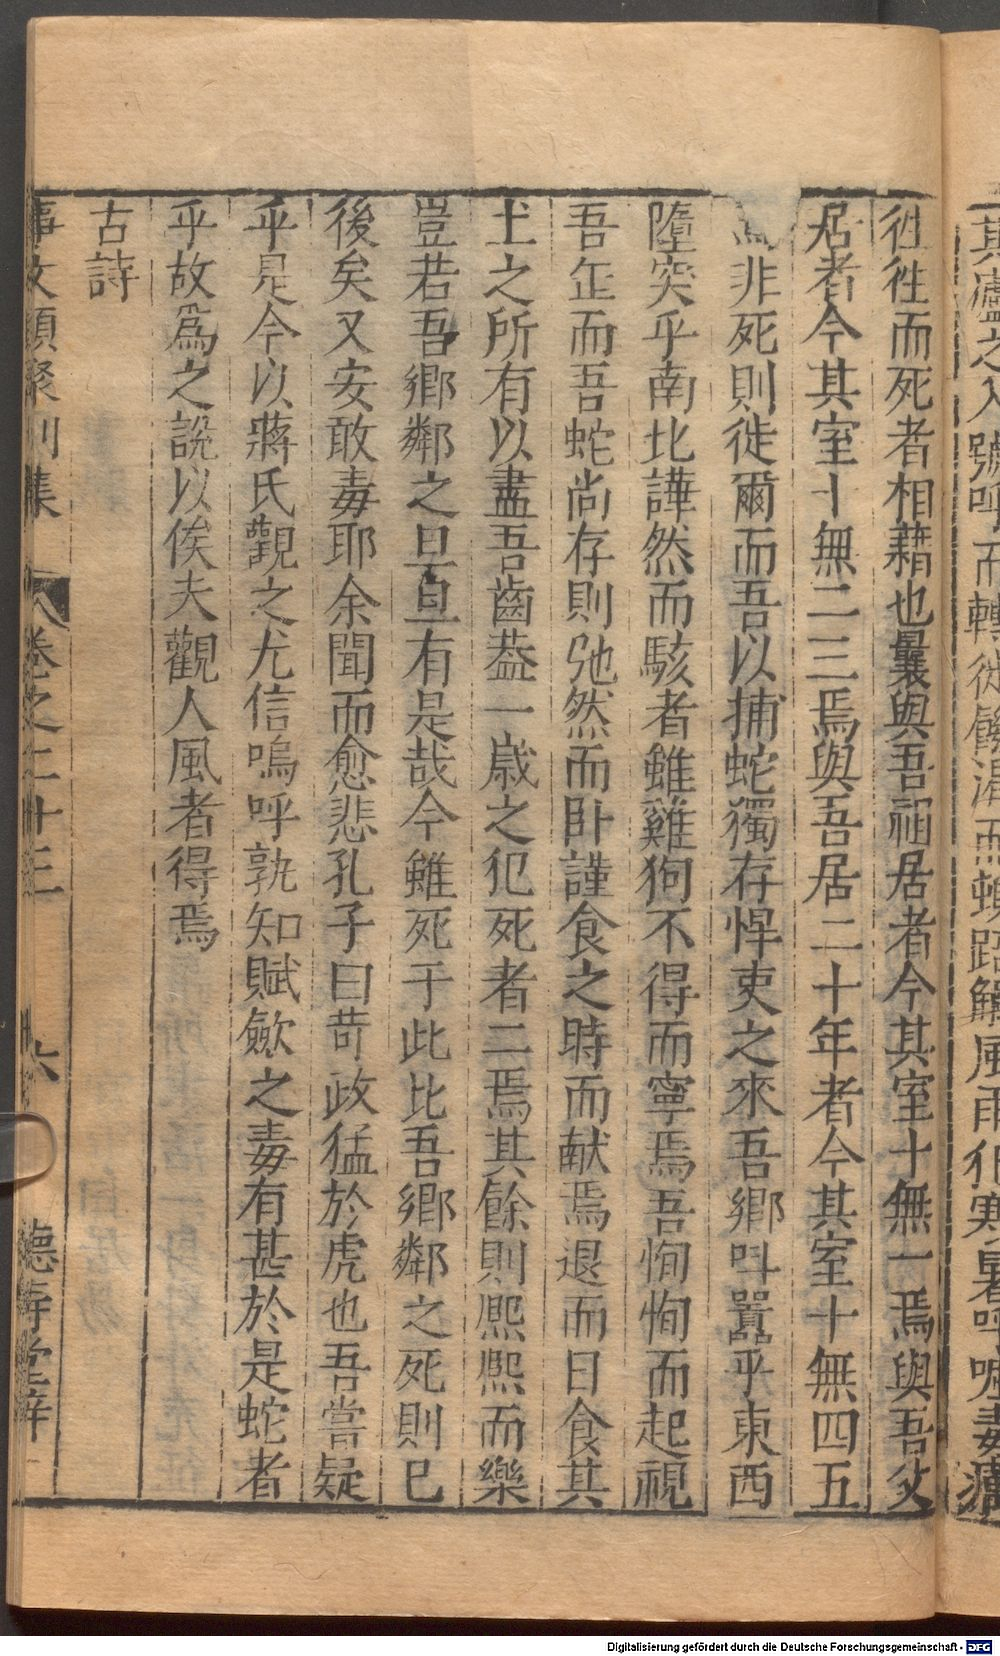 其廬之入號呼而轉徙餓渴而頓踣觸風雨犯寒暑呼噓毒癘
徃徃而死者相藉也曩與吾祖居者今其室十無一焉與吾父
居者今其室十無二三焉與吾居二十年者今其室十無四五
焉非死則徙爾而吾以捕蛇獨存悍吏之來吾鄉叫囂乎東西
隳突乎南北譁然而駭者雖雞狗不得而寧焉吾恂恂而起視
吾缶而吾蛇尚存則弛然而卧謹食之時而献焉退而日食其
土之所有以盡吾齒葢一歲之犯死者二焉其餘則熈熈而樂
豈若吾鄉鄰之旦旦有是哉今雖死于此比吾鄉鄰之死則已
後矣又安敢毒耶余聞而愈悲孔子曰苛政猛於虎也吾嘗疑
乎是今以蔣氏觀之尤信嗚呼孰知賦歛之毒有甚於是蛇者
乎故爲之說以俟夫觀人風者得焉
古詩
事文類聚別集 卷之二十三 六 德壽堂梓
Digitalisierung gefördert durch die Deutsche Forschungsgemeinschaft - DFG